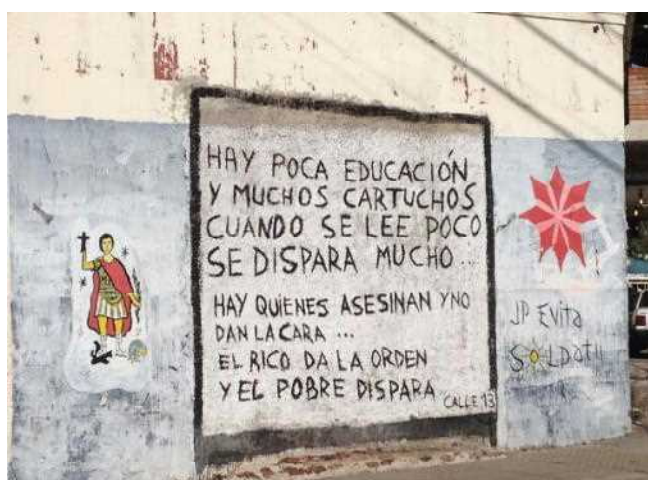 HAY POCA EDUCACIÓN
Y MUCHOS CARTUCHOS
CUANDO SE LEE POCO
SE DISPARA MUCHO...
HAY QUIENES ASESINAN Y NO
DAN LA CARA...
EL RICO DA LA ORDEN
Y EL POBRE DISPARA
CALLE 13
JP Evita
SOLDATI